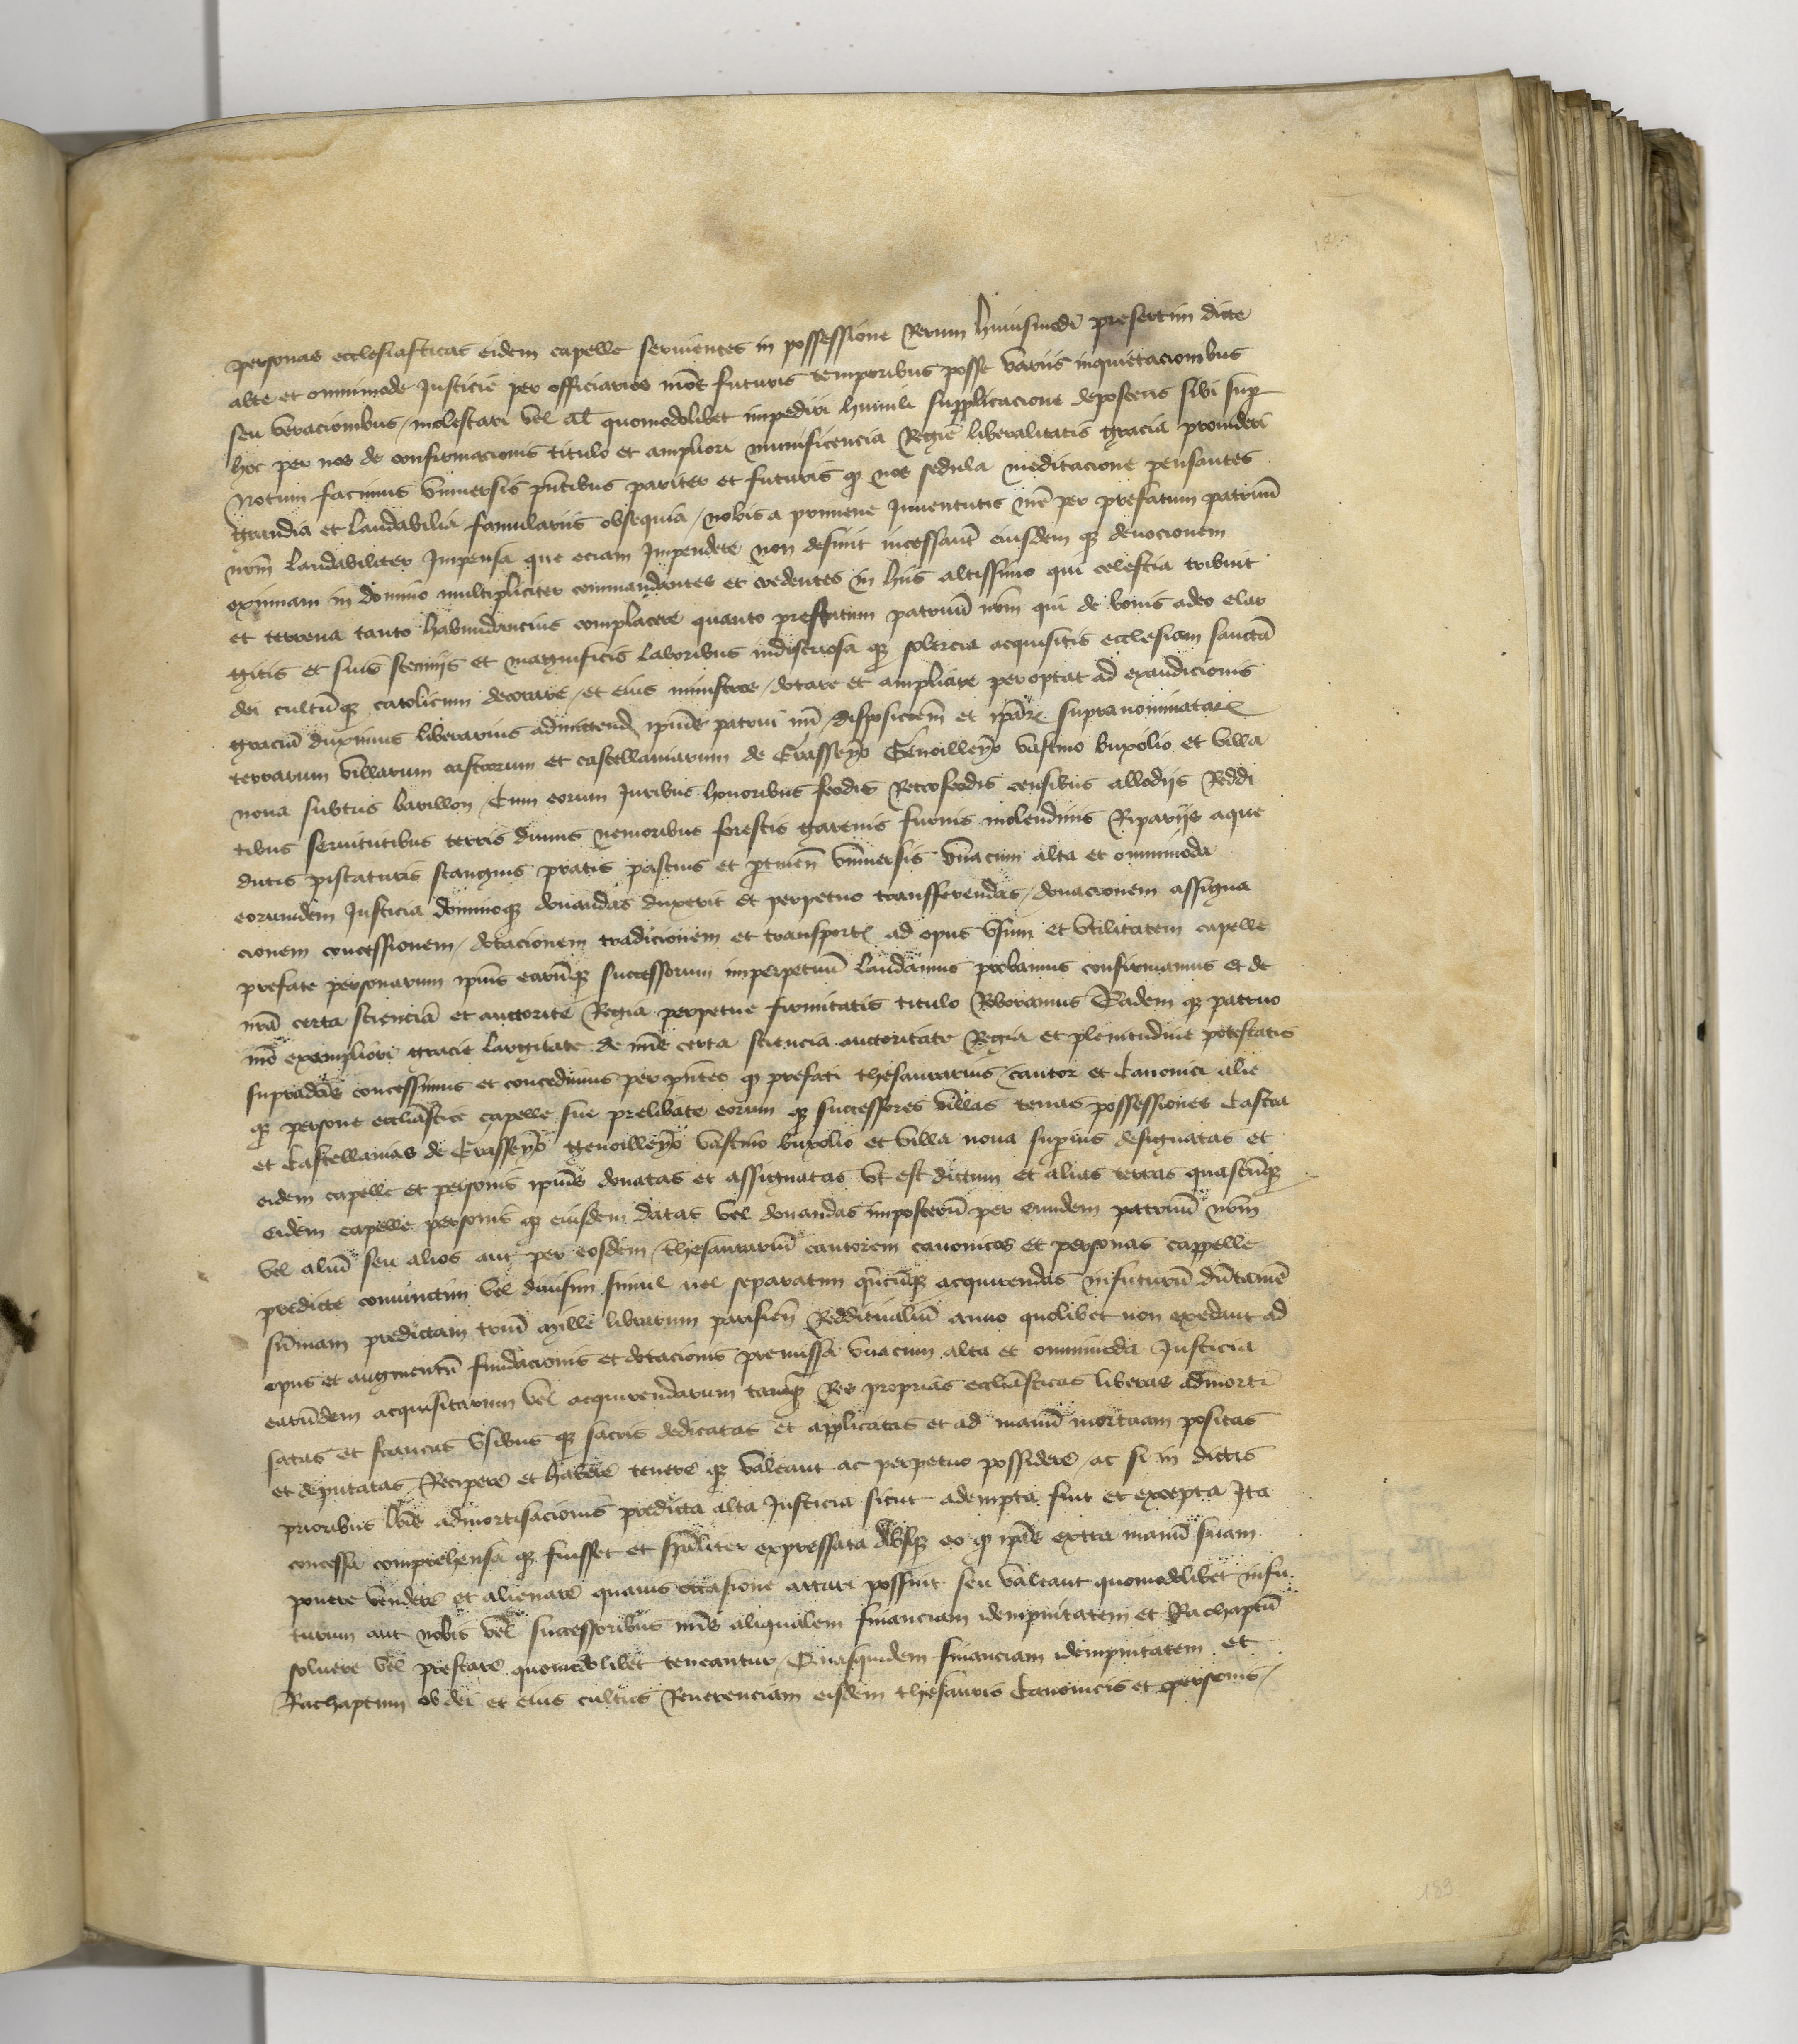 personas ecclesiasticas eidem capelle seruientes in possessione rerum huiusmodi presertim dicte
alte et omnimode Justicie per officiarios nros futuris temporibus posse variis inquietacionibus
seu vexacionibus / molestari vel al quomodolibet impediri humili supplicacione deposcens sibi sup
hoc per nos de confirmacionis titulo et ampliori munificencia Regie liberalitatis gracia prouideri
Notum facimus vniuersis pntibus pariter et futuris qd nos sedula meditacione pensantes
grandia et laudabilia famulariis obsequia / nobis a primeue Juuentutis nre per prefatum patruu
nrm laudabiliter Impensa que eciam Impendere non desinit incessant eiusdem qz deuocionem
eximiam in domino multipliciter commandantes et credentes in hiis altissimo qui celestia tribuit
et terrena tanto habundancius complacere quanto prefatum patruu nrm qui de bonis adeo elar
gitis et suis stemijs et magnificis laboribus indistriosa qz solercia acquisitis ecclesiam sancta
dei cultuqz catolicum decorare / et eius ministros / dotare et ampliare peroptat ad exaudicionis
graciu duximus liberarius admittend ipius patrui nri / disposicoem et ipar supranominatar
terrarum villarum castrorum et castellaniarum de Grasseyo Genoilleyo vastino buxolio et villa
noua subtus barillon / Cum eorum Juribus honoribus feodis Retrofeodis censibus allodijs Reddi
tibus seruitutibus terris dumis nemoribus forestis garenis furnis molendinis Riparijs aque
ductis piscaturis stangnis pratis pascuis et ptinen vniuersis vnacum alta et omnimoda
eorumdem Justicia dominoqz donandas duxerit et perpetuo transferendas / donacionem assigna
cionem concessionem / dotacionem tradicionem et transport ad opus vsum et vtilitatem capelle
prefate personarum ipius earuqz successorum imperpetuu laudamus probamus confirmamus et de
nra certa sciencia et auctorite Regia perpetue firmitatis titulo Roboramus Eadem qz patruo
nro exampliori gracie largitate de nra certa sciencia auctoritate Regia et plenitudine potestatis
supradcis concessimus et concedimus per pntes qd prefati thesaurarius / cantor et Canonici alie
qz persone eccliastice capelle sue prelibate eorum qz successores villas terras possessiones Castra
et Castellanias de Grasseyo genoilleyo vastino buxolio et villa noua superius designatas et
eidem capelle et personis ipius donatas et assignatas vt est dictum et alias terras quascuqz
eidem capelle personis qz eiusdem datas vel donandas imposteru per eundem patruu nrm
vel aliu seu alios aut per eosdem / thesaurariu cantorem canonicos et personas cappelle
predicte coniunctim vel diuisim simul vel separatim qncuqz acquirendas infuturu dutamen
sumam predictam triu mille librarum parisien Reddituaiu anno quolibet non excedant ad
opus et augmentu fundacionis et dotacionis premissa vnacum alta et omnimoda Justicia
earudem acquisitarum vel acquirendarum tanqz Res proprias eccliasticas liberas admorti
satas et francas vsibus qz sacris dedicatas et applicatas et ad manu mortuam positas
et deputatas / Recipere et habere tenere qz valeant ac perpetuo possidere / ac si in dictis
prioribus lris admortisacionis predicta alta Justicia sicut adempta fuit et excepta Ita
concessa comprehensa qz fuisset et spaliter expressata Absqz eo qd ipas extra manu suam
ponere vendere et alienare quauis occasione artari possint seu valeant quomodolibet infu
turum aut nobis vel successoribus nris aliqualem financiam idempnitatem et Rachaptu
soluere vel prestare quomodolibet teneantur / Quasquidem financiam idempnitatem et
Rachaptum ob dei et eius cultus Reuerenciam eisdem thesauris Canonicis et personis /
189